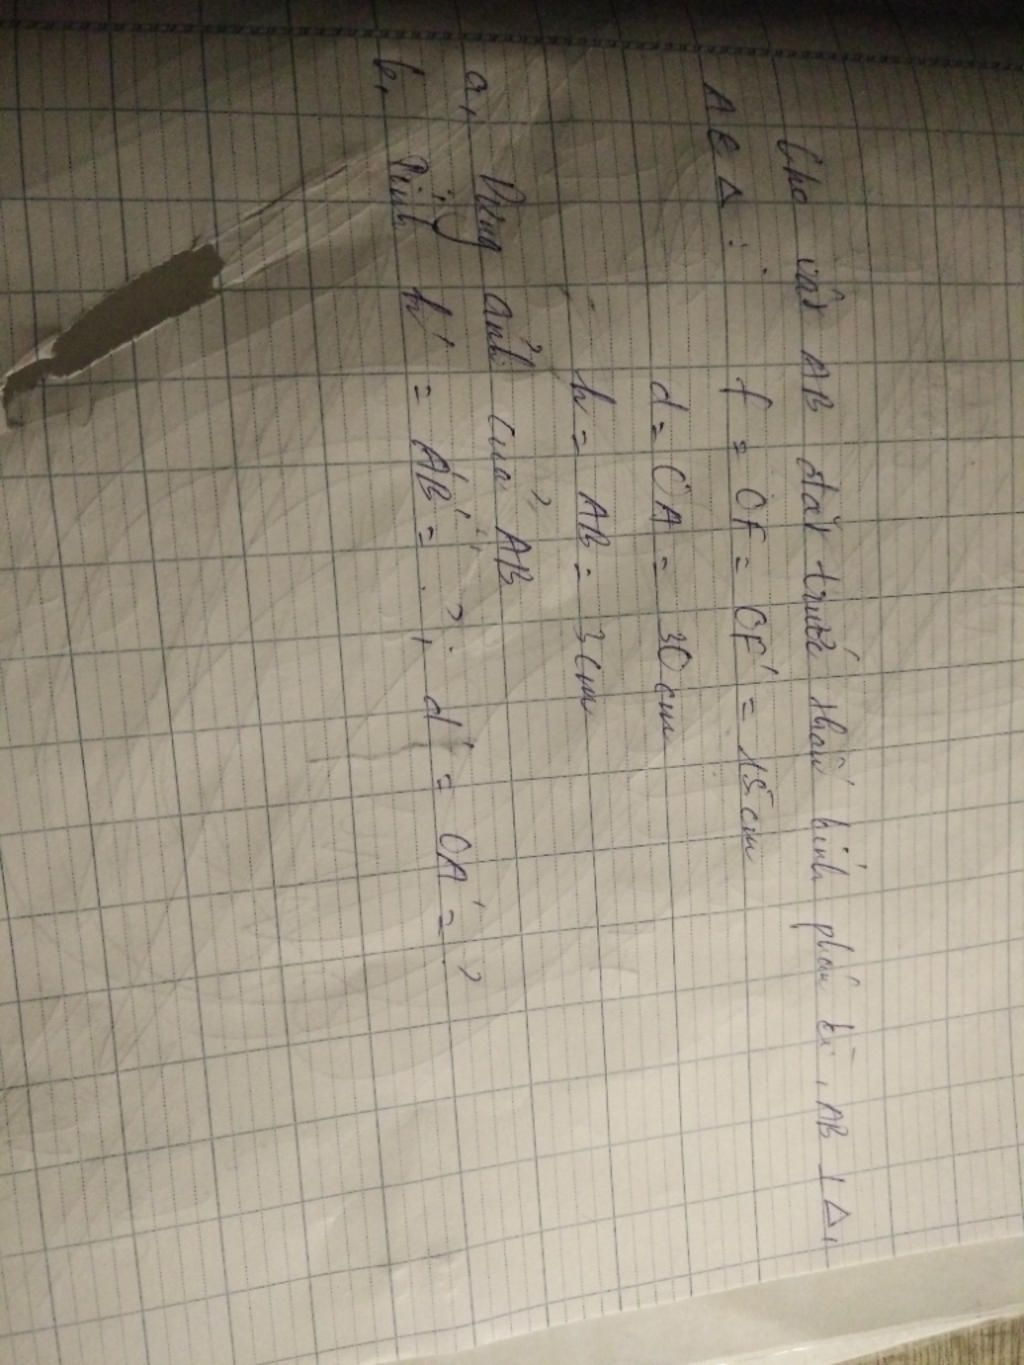 Cho vật AB đặt trước thấu kính phân kì, AB ⊥ Δ,
A ∈ Δ :
f = OF = OF' = 15 cm
d = OA = 30 cm
h = AB = 3 cm
a, Dựng ảnh của AB
b, Tính h' = A'B' = ?, d' = OA' = ?